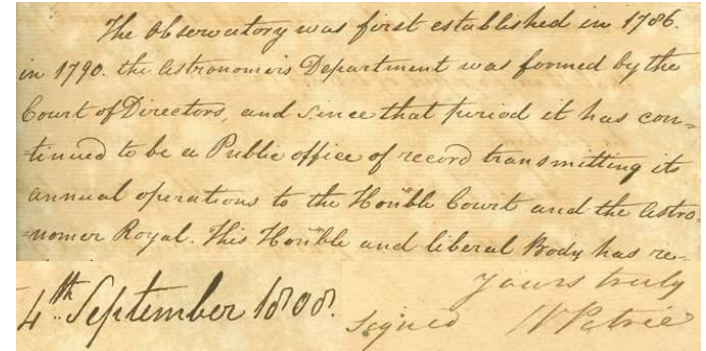 The Observatory was first established in 1786.
in 1790. the Astronomers Department was formed by the
Court of Directors, and since that period it has con=
=tinued to be a Public office of record transmitting its
annual operations to the Honble Court and the Astro=
=nomer Royal. This Honble and liberal Body has re=
Yours truly
4th September 1808. Signed W Petrie